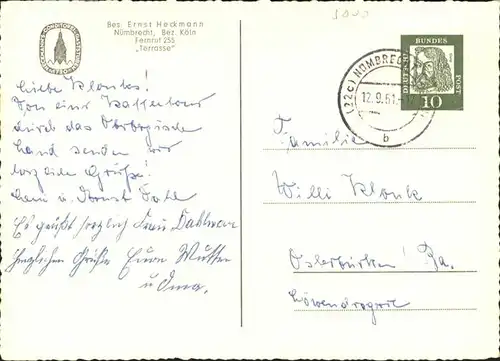 Bes. Ernst Heckmann
Nümbrecht, Bez. Köln
Fernruf 255
„Terrasse"
Liebe Klonks!
Von einer Kaffeetour
durch das Oberbergische
Land senden wir
herzliche Grüße!
u. Ernst
Es grüßt herzlich Frau
Grüße Eure Mutter
u Oma.
(22c) NÜMBRECHT
12.9.61
b
DEUTSCHE
BUNDES
POST
10
Familie
Willi Klonk
Osterburken / Ba.
Löwendrogerie